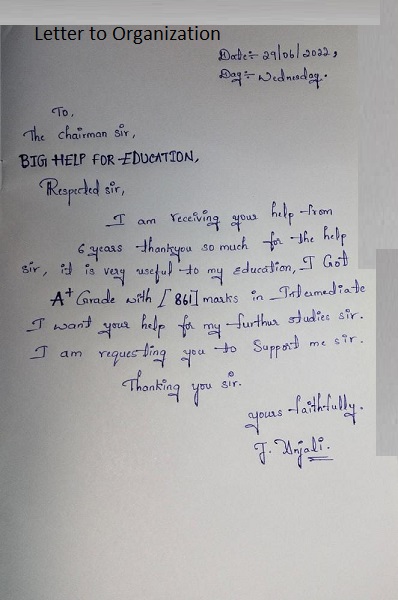 Letter to Organization
Date:- 29/06/2022,
Day:- Wednesday.
To,
The chairman sir,
BIG HELP FOR EDUCATION,
Respected sir,
I am receiving your help from
6 years thankyou so much for the help
sir, it is very useful to my education, I Got
A+ Grade with [861] marks in Intermediate
I want your help for my furthur studies sir.
I am requesting you to Support me sir.
Thanking you sir.
yours faithfully.
J. Anjali.